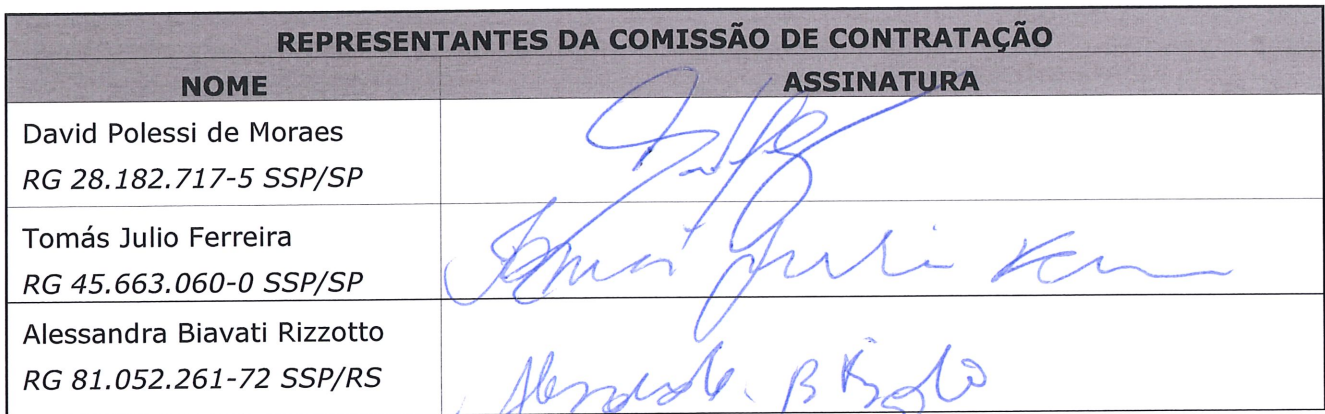 REPRESENTANTES DA COMISSÃO DE CONTRATAÇÃO
NOME ASSINATURA
David Polessi de Moraes
RG 28.182.717-5 SSP/SP
Tomás Julio Ferreira
RG 45.663.060-0 SSP/SP
Alessandra Biavati Rizzotto
RG 81.052.261-72 SSP/RS